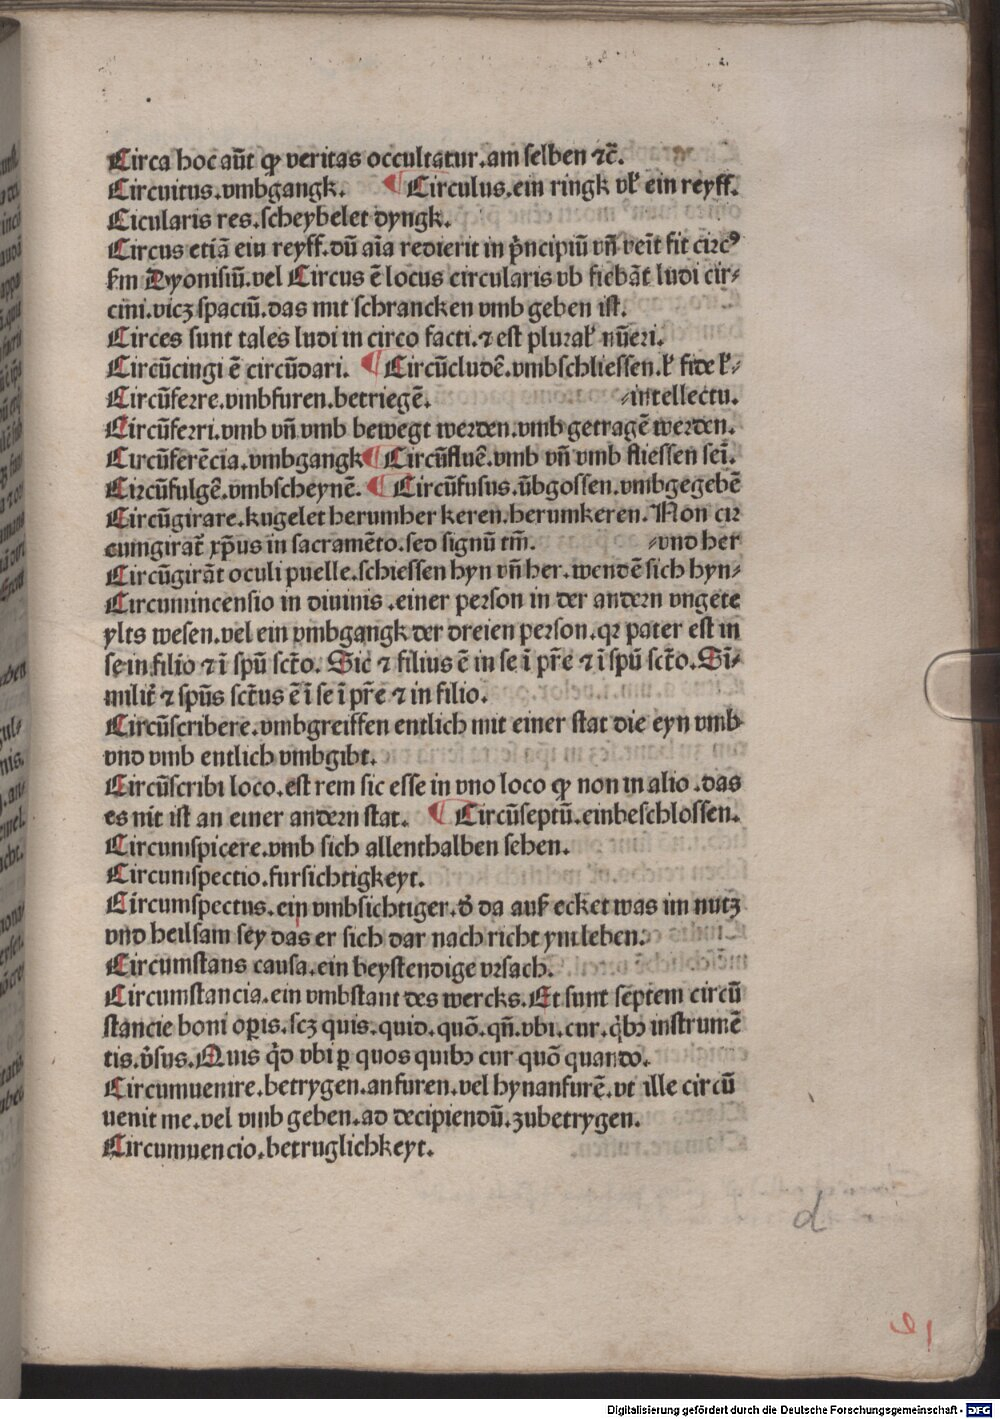 Circa hoc aūt ꝙ veritas occultatur.am selben ⁊c̄.
Circuitus.vmbgangk. ¶ Circulus.ein ringk vl̕ ein reyff.
Cicularis res.scheybelet dyngk.
Circus etiā ein reyff.dū aīa redierit in pͥncipiū vn̄ veīt fit circꝰ
ẜm Dyonisiū.vel Circus ē locus circularis vb fiebāt ludi cir⸗
cini.vicꝫ spaciū.das mit schrancken vmb geben ist.
Circes sunt tales ludi in circo facti.⁊ est plural̕ nūeri.
Circūcingi ē circūdari. ¶ Circūcludē.vmbschliessen.l̕ fide l̕⸗
Circūferre.vmbfuren.betriegē. ⸗intellectu.
Circūferri.vmb vn̄ vmb bewegt werden.vmb getragē werden.
Circūferēcia.vmbgangk ¶ Circūfluē.vmb vn̄ vmb fliessen sei̅.
Circūfulgē.vmbscheynē. ¶ Circūfusus.ūbgossen.vmbgegebē
Circūgirare.kugelet herumher keren.herumkeren.Non cir
cumgirat̄ xp̄us in sacramēto.sed signū tm̄. ⸗vnd her
Circūgirāt oculi puelle.schiessen hyn vn̄ her.wendē sich hyn⸗
Circumincensio in diuinis .einer person in der andern vngete
ylts wesen.vel ein vmbgangk der dreien person.qꝛ pater est in
se in filio ⁊ ī spū sct̄o. Sic ⁊ filius ē in se ī pr̄e ⁊ ī spū sct̄o.Si̅⸗
milit̄ ⁊ spūs sct̄us ē ī se ī pr̄e ⁊ in filio.
Circūscribere.vmbgreiffen entlich mit einer stat die eyn vmb
vnd vmb entlich vmbgibt.
Circūscribi loco.est rem sic esse in vno loco ꝙ non in alio .das
es nit ist an einer andern stat. ¶ Circūseptū.einbeschlossen.
Circumspicere.vmb sich allenthalben sehen.
Circumspectio.fursichtigkeyt.
Circumspectus.ein vmbsichtiger.d̕ da auf ecket was im nutz
vnd heilsam sey das er sich dar nach richt ym leben.
Circumstans causa.ein beystendige vrsach.
Circumstancia.ein vmbstant des wercks.Et sunt septem circū
stancie boni oꝑis.scꝫ quis.quid.quō.qn̄.vbi.cur.qͥbꝫ instrumē
tis.v̕sus.Quis qͥd vbi ꝑ quos quibꝫ cur quō quando.
Circumuenire.betrygen.anfuren.vel hynanfurē.vt ille circū
uenit me.vel vmb geben.ad decipiendū.zubetrygen.
Circumuencio.betruglichkeyt.
d
Digitalisierung gefördert durch die Deutsche Forschungsgemeinschaft - DFG